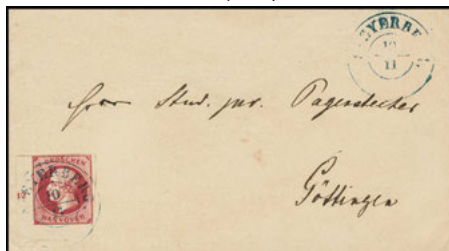 10
11
Herrn Stud. jur. Pagenstecher
Göttingen
GROSCHEN
10
HANNOVER